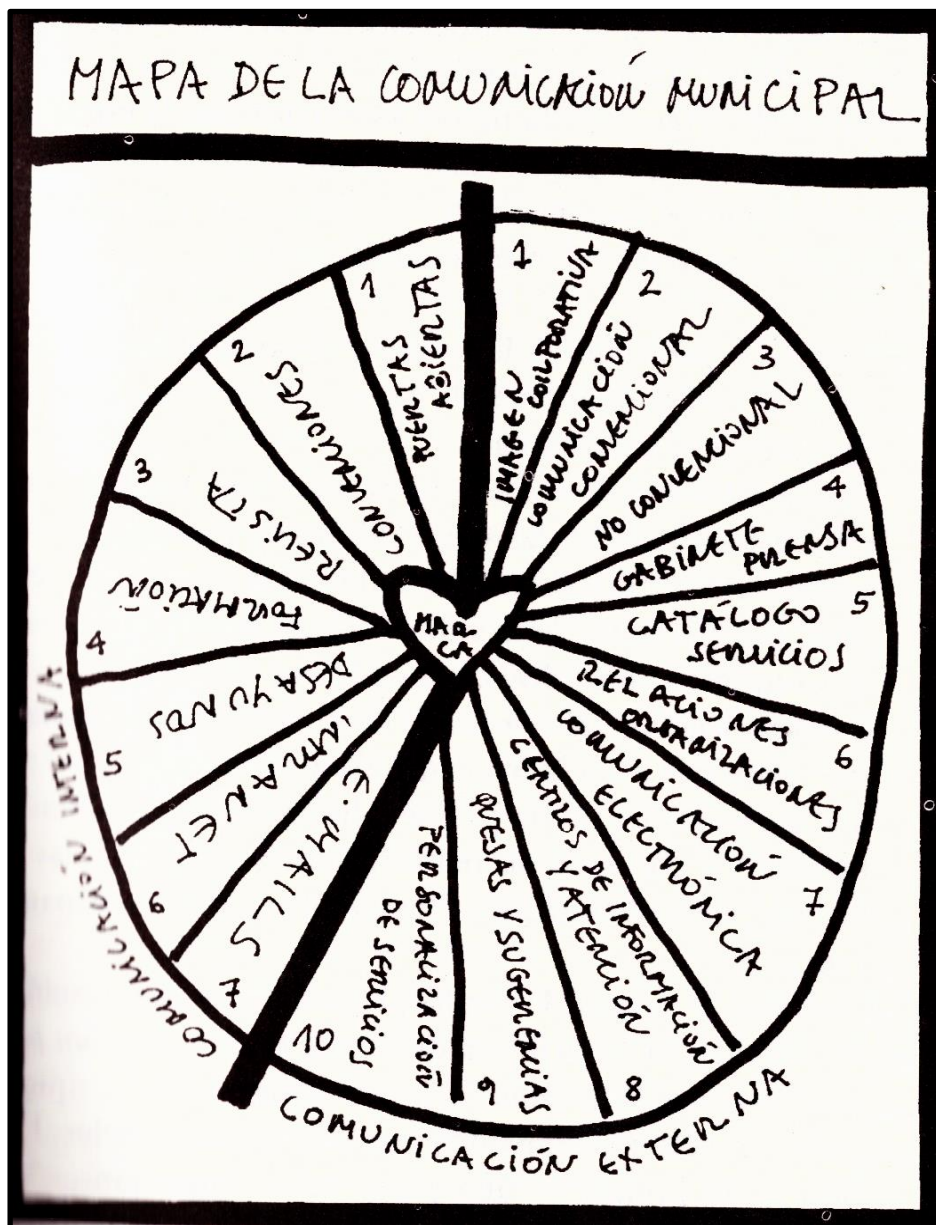 MAPA DE LA COMUNICACIÓN MUNICIPAL
1
IMAGEN
CORPORATIVA
2
COMUNICACIÓN
CONVENCIONAL
3
NO CONVENCIONAL
4
GABINETE
PRENSA
5
CATÁLOGO
SERVICIOS
6
RELACIONES
ORGANIZACIONES
7
COMUNICACIÓN
ELECTRÓNICA
8
CENTROS DE INFORMACIÓN
Y ATENCIÓN
9
QUEJAS Y SUGERENCIAS
10
PERSONALIZACIÓN
DE SERVICIOS
COMUNICACIÓN EXTERNA
1
PUERTAS
ABIERTAS
2
CONVENCIONES
3
REVISTA
4
FORMACIÓN
5
DESAYUNOS
6
INTRANET
7
E.MAILS
COMUNICACIÓN INTERNA
MAR
CA